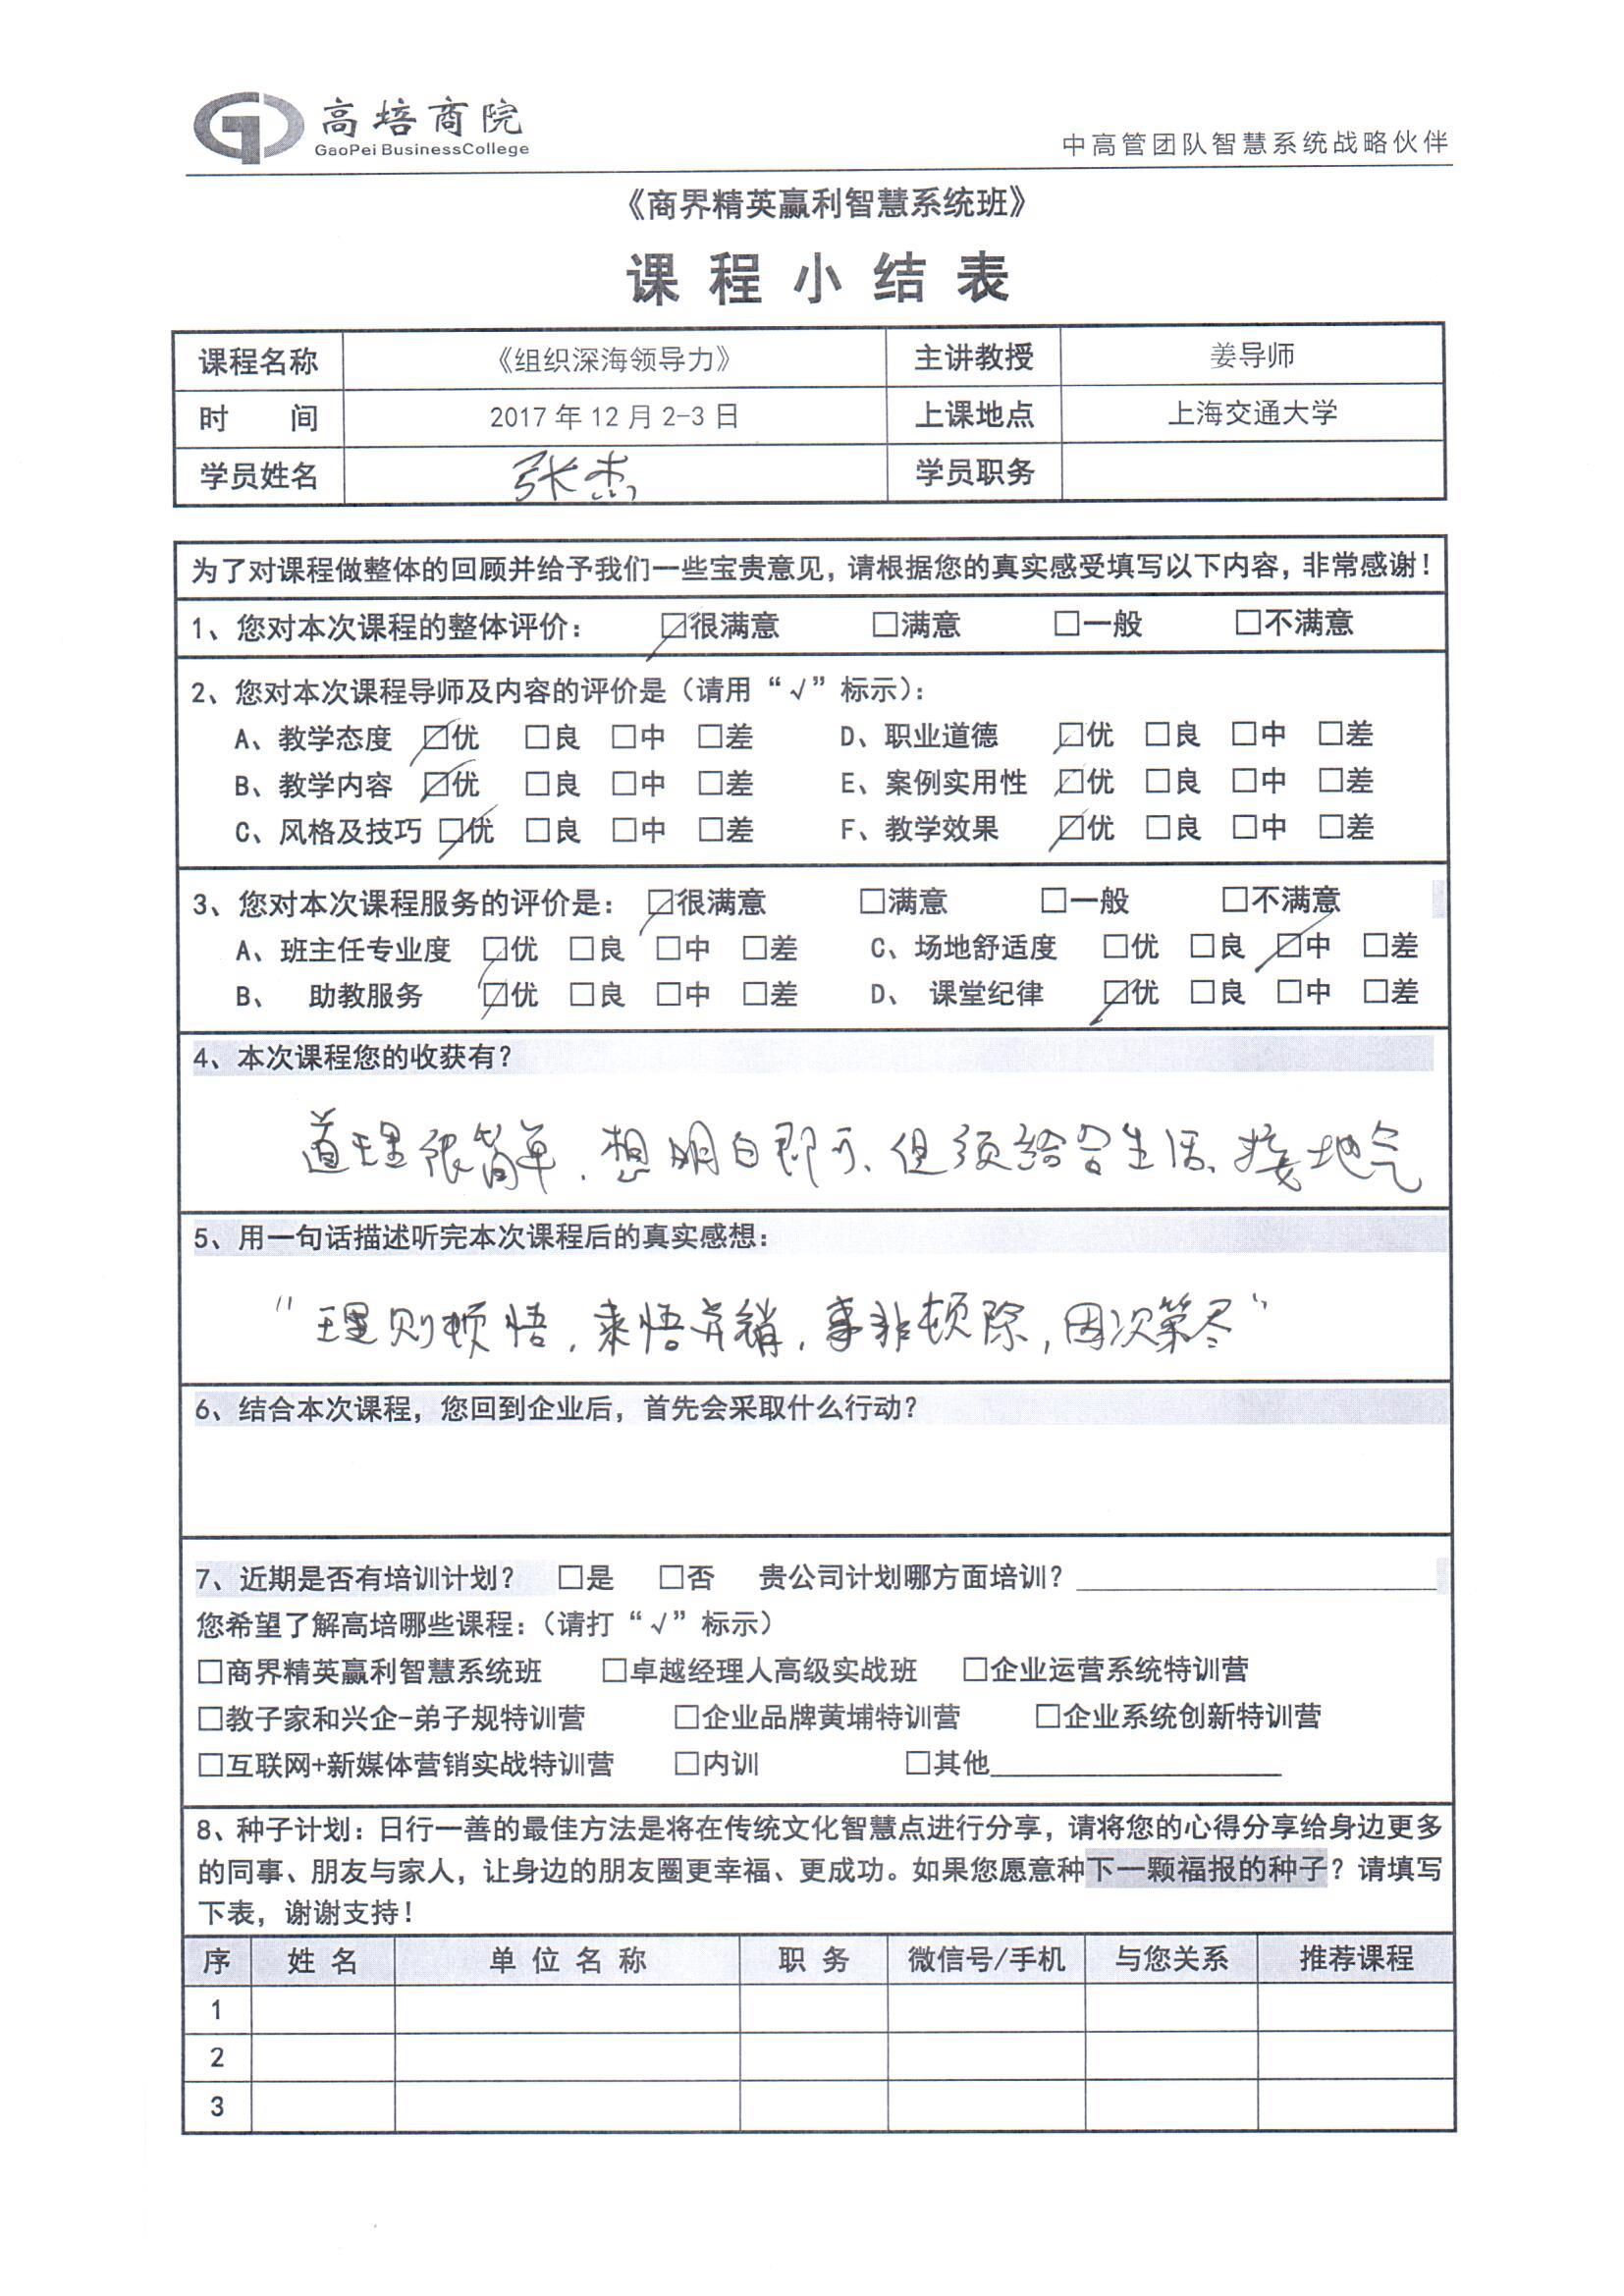 高培商院
GaoPei BusinessCollege
中高管团队智慧系统战略伙伴
《商界精英赢利智慧系统班》
课程小结表
课程名称 《组织深海领导力》 主讲教授 姜导师
时 间 2017年12月2-3日 上课地点 上海交通大学
学员姓名 张杰 学员职务
为了对课程做整体的回顾并给予我们一些宝贵意见，请根据您的真实感受填写以下内容，非常感谢！
1、您对本次课程的整体评价： ☑很满意 □满意 □一般 □不满意
2、您对本次课程导师及内容的评价是（请用“√”标示）：
A、教学态度 ☑优 □良 □中 □差 D、职业道德 ☑优 □良 □中 □差
B、教学内容 ☑优 □良 □中 □差 E、案例实用性 ☑优 □良 □中 □差
C、风格及技巧 ☑优 □良 □中 □差 F、教学效果 ☑优 □良 □中 □差
3、您对本次课程服务的评价是： ☑很满意 □满意 □一般 □不满意
A、班主任专业度 ☑优 □良 □中 □差 C、场地舒适度 □优 □良 ☑中 □差
B、 助教服务 ☑优 □良 □中 □差 D、 课堂纪律 ☑优 □良 □中 □差
4、本次课程您的收获有？
道理很简单，想明白即可、但须结合生活、接地气
5、用一句话描述听完本次课程后的真实感想：
“理则顿悟，乘悟并销，事非顿除，因次第尽”
6、结合本次课程，您回到企业后，首先会采取什么行动？
7、近期是否有培训计划？ □是 □否 贵公司计划哪方面培训？
您希望了解高培哪些课程：（请打“√”标示）
□商界精英赢利智慧系统班 □卓越经理人高级实战班 □企业运营系统特训营
□教子家和兴企-弟子规特训营 □企业品牌黄埔特训营 □企业系统创新特训营
□互联网+新媒体营销实战特训营 □内训 □其他
8、种子计划：日行一善的最佳方法是将在传统文化智慧点进行分享，请将您的心得分享给身边更多
的同事、朋友与家人，让身边的朋友圈更幸福、更成功。如果您愿意种下一颗福报的种子？请填写
下表，谢谢支持！
序 姓名 单位名称 职务 微信号/手机 与您关系 推荐课程
1
2
3